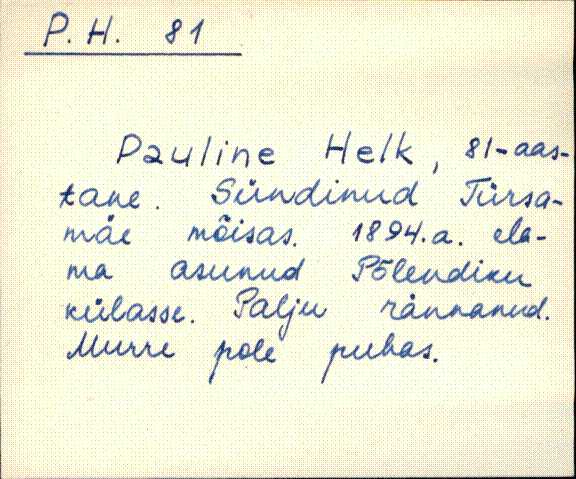 P. H. 81
Pauline Helk, 81-aas-
tane. Sündinud Türsa-
mäe mõisas. 1894.a. ela-
ma asunud Põlendiku
külasse. Palju rännanud.
Murre pole puhas.